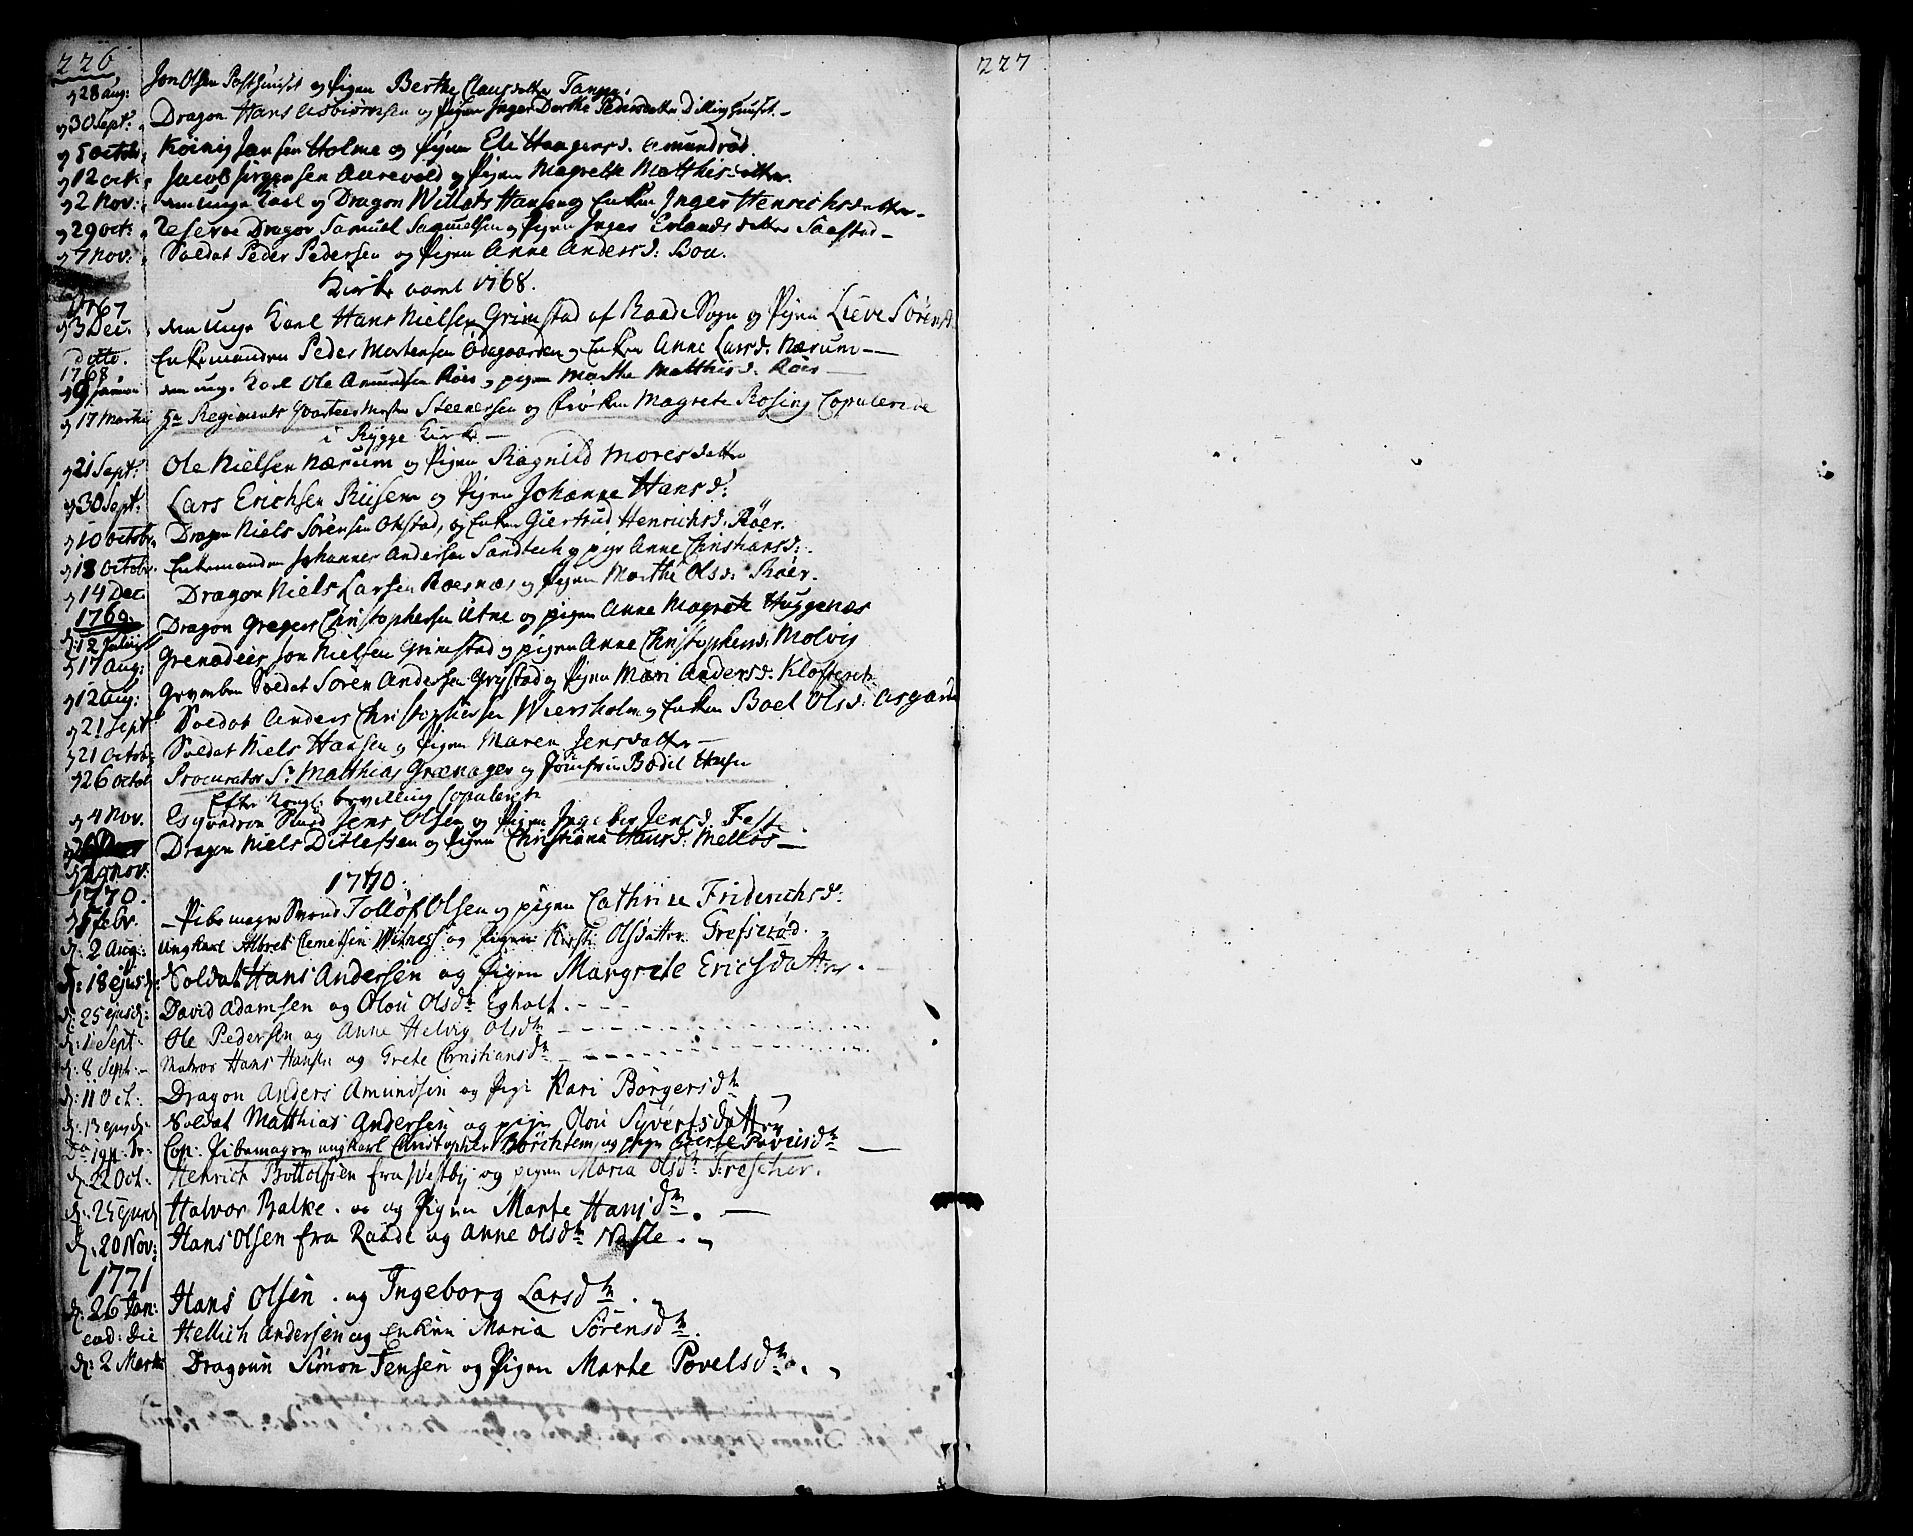 226
d 28 aug: Jon Olsen Posthuuset og Pigen Berthe Clausdatter Tangen.
d 30 Sept: Dragon Hans Asbiørnsen og Pigen Inger Dorthe Pedersdatter Dillinghuuset.
d 5 octob: Køinig Jansen Holme og Pigen Ele Haagensd. Amundrød.
d 12 oct: Jacob Jørgensen Aarevold og Pigen Magrethe Matthisdatter.
d 2 Nov: den unge Karl og Dragon Willats Hansen og Enken Inger Henrichsdatter
d 29 oct: Reserve Dragon Samuel Samuelsen og Pigen Inger Erlandsdatter Saastad
d 7 nov: Soldat Peder Pedersen og Pigen Anne Andersd: Boa.
Kirke aaret 1768.
1767
d 3 Dec. den unge Karl Hans Nielsen Grimstad af Raade Sogn og Pigen Lieve Sørensd
ditto. Enkemanden Peder Mortensen Ødegaarden og Enken Anne Larsd: Nærum
1768
d 9 Januar den ung. Karl Ole Amundsen Røer og pigen Marthe Matthisd: Røer
d 17 Martii Sr Regiments Qvarteer Mester Steenersen og Frøken Magrete Rosing Copulerede
i Rygge Kirke
d 21 Sept: Ole Nielsen Nærum og Pigen Ragnild Moresdatter
d 30 Sept: Lars Erichsen Riisen og Pigen Johanne Hansd:
d 10 octobr. Dragon Niels Sørensen Okstad, og Enken Giertrud Henrichsd: Røer.
d 18 Octobr. Enkemanden Johannes Andersen Sandtech og pige Anne Christiansd:
d 14 Dec. Dragon Niels Larsen Roesnæs og Pigen Marthe Olsd: Røer.
1769.
d: 12 Julii Dragon Greger Christophersen Utne og pigen Anne Magrete Huggenæs
d 17 aug: Grenadeer Jon Nielsen Grimstad og pigen Anne Christophersd: Molvig
d 12 aug: Gevorben Soldat Søren Andersen Grystad og Pigen Mari Andersd: Kløfteret
d 21 Sept Soldat Anders Christophersen Wiersholm og Enken Boel Olsd: Asgaard
d 21 Octob: Soldat Niels Hansen og Pigen Maren Jensdatter
d 26 Octob Procurator Sr. Matthias Grænager og Jomfrue Bodil Huser
Efter Kongl: bevilling Copulerede
d 4 Nov. Esqvadron Smed Jens Olsen og Pigen Ingebor Jensd: Feste
d 29 nov: Dragon Niels Ditlefsen og Pigen Christiana Hansd: Melløs
1770.
1770.
d 5 Febr. Pibemager Svend Tollof Olsen og pigen Cathrine Friderichsd:
d: 2 Aug: ungkarl Albret Clemetsen Witness og Pigen Kirsti Olsdatter Grefsrød.
d: 18 ejusd: Soldat Hans Andersen og Pigen Margrete Ericsdatter.
d: 25 ejusd: David Adamsen og Olou Olsdtr Egholt.
d: 1 Sept: Ole Pedersen og Anne Helvig Olsdtr
d: 8 Septr: Matros Hans Hansen og Grete Christiansdtr
d: 11 Oct. Dragon Anders Amundsen og Pige Kari Børgersdtr
d: 13 ejusd: Soldat Matthias Andersen og pigen Olou Syvertsdatter
Cop: Pibemager ungkarl Christopher Børchtem og pige Gierte Povelsdtr
d: 22 Oct: Henrich Bottolfsen fra Westby og pigen Maria Olsdtr Frescher.
d: 25 ejusd Halvor Balke og Pigen Marte Hansdtr.
d. 20 Nov: Hans Olsen fra Raade og Anne Olsdtr Nasle.
1771
d: 26 Jan: Hans Olsen og Ingeborg Larsdtr.
eod: Die Hellich Andersen og Enken Maria Sørensdtr.
d: 2 Marti Dragoun Simon Jensen og Pigen Marte Povelsdtr.
227